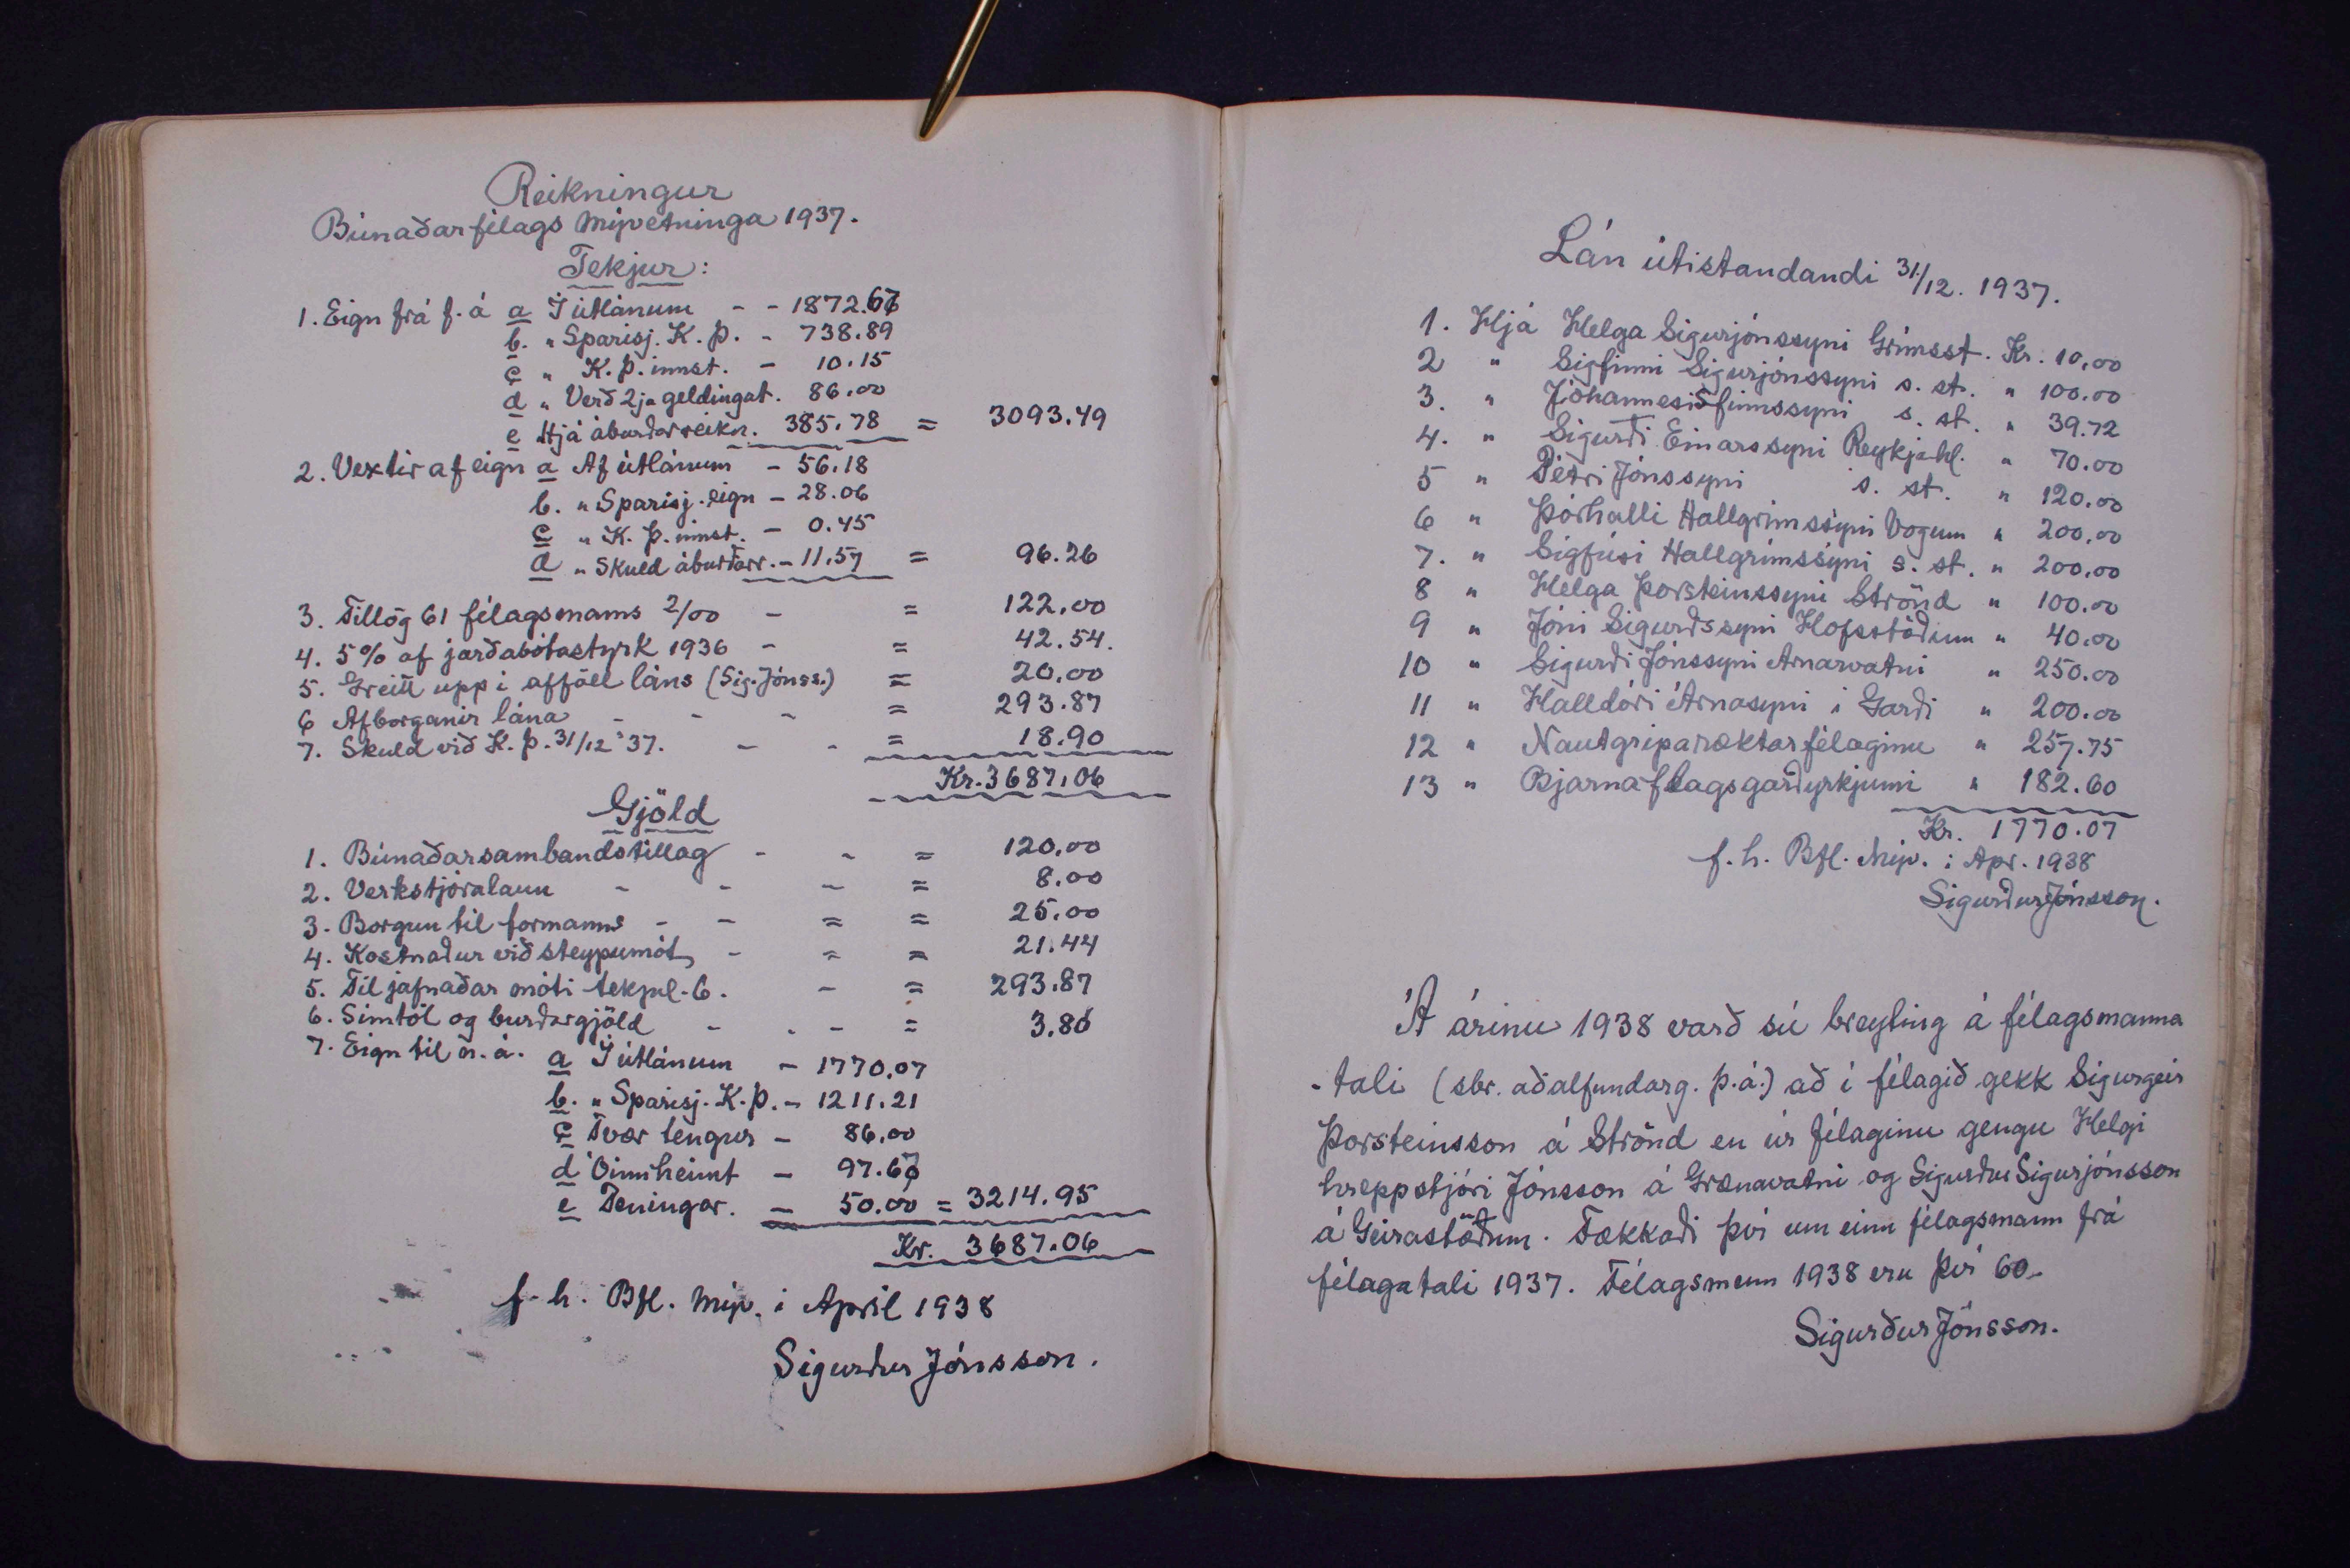 Reikningur
Búnaðarfélags Mývetninga 1937.
Tekjur:
1. Eign frá f. á a Í útlánum - - 1872.67
b. " Sparisj. K. Þ. - 738.89
c " K. Þ. innst. - 10.15
d " Verð 2ja geldingat. 86.00
e Hjá áburðarreikn. 385.78 = 3093.49
2. Vextir af eign a Af útlánum - 56.18
b. " Sparisj. eign - 28.06
c " K. Þ. innst. - 0.45
d " Skuld áburðarr. - 11.57 = 96.26
3. Tillög 61 félagsmanns 2/00 - = 122.00
4. 5% af jarðabótastyrk 1936 - = 42.54.
5. Greitt upp í afföll láns (Sig. Jónss.) = 20.00
6 Afborganir lána - - - = 293.87
7. Skuld við K. Þ. 31/12 '37. - - = 18.90
Kr. 3687.06
Gjöld
1. Búnaðarsambandstillag - - = 120.00
2. Verkstjóralaun - - - = 8.00
3. Borgun til formanns - - = = 25.00
4. Kostnaður við steypumót - = = 21.44
5. Til jafnaðar móti tekjul. 6. - = 293.87
6. Símtöl og burðargjöld - - - = 3.80
7. Eign til n. á. a Í útlánum - 1770.07
b. " Sparisj. K. Þ. - 1211.21
c Tvær tengur - 86.00
d Óinnheimt - 97.67
e Peningar. - 50.00 = 3214.95
Kr. 3687.06
f. h. Bfl. Mýv. í Apríl 1938
Sigurður Jónsson.
Lán útistandandi 31/12. 1937.
1. Hjá Helga Sigurjónssyni Grímsst. Kr. 10.00
2 " Sigfinni Sigurjónssyni s. st. " 100.00
3. " Jóhannesi Sfinnssyni s. st. " 39.72
4. " Sigurði Einarssyni Reykjahl. " 70.00
5 " Pétri Jónssyni s. st. " 120.00
6 " Þórhalli Hallgrímssyni Vogum " 200.00
7. " Sigfúsi Hallgrímssyni s. st. " 200.00
8 " Helga Þorsteinssyni Strönd " 100.00
9 " Jóni Sigurðssyni Hofsstöðum " 40.00
10 " Sigurði Jónssyni Arnarvatni " 250.00
11 " Halldóri Árnasyni í Garði " 200.00
12 " Nautgriparæktarfélaginu " 257.75
13 " Bjarnaflagsgarðyrkjunni " 182.60
Kr. 1770.07
f. h. Bfl. Mýv. í Apr. 1938
Sigurður Jónsson.
Á árinu 1938 varð sú breyting á félagsmanna
-tali (sbr. aðalfundarg. þ. á.) að í félagið gekk Sigurgeir
Þorsteinsson á Strönd en úr félaginu gengu Helgi
hreppstjóri Jónsson á Grænavatni og Sigurður Sigurjónsson
á Geirastöðum. Fækkaði því um einn félagsmann frá
félagatali 1937. Félagsmenn 1938 eru því 60.
Sigurður Jónsson.